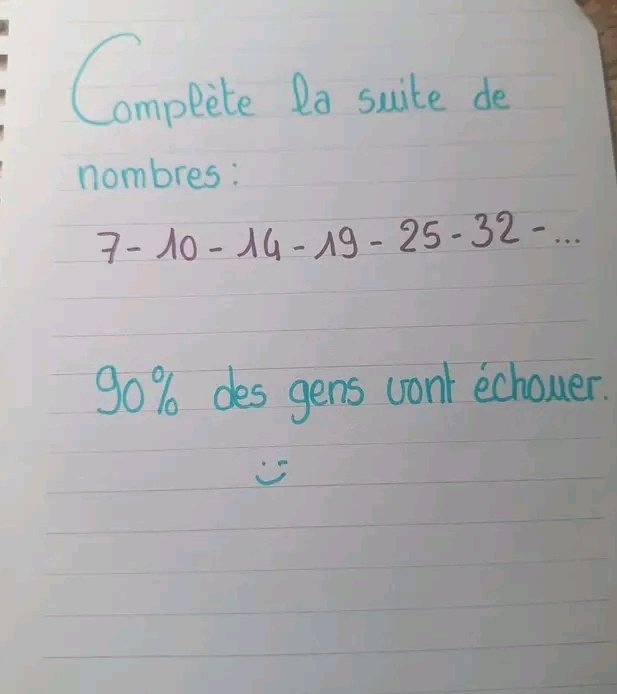 Complète la suite de
nombres :
7 - 10 - 14 - 19 - 25 - 32 - ...
90% des gens vont échouer.
:-)